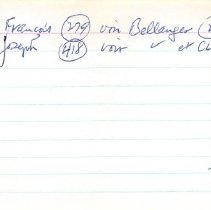 François 279 voir Bellanger
Joseph 418 voir ✓ et Cl